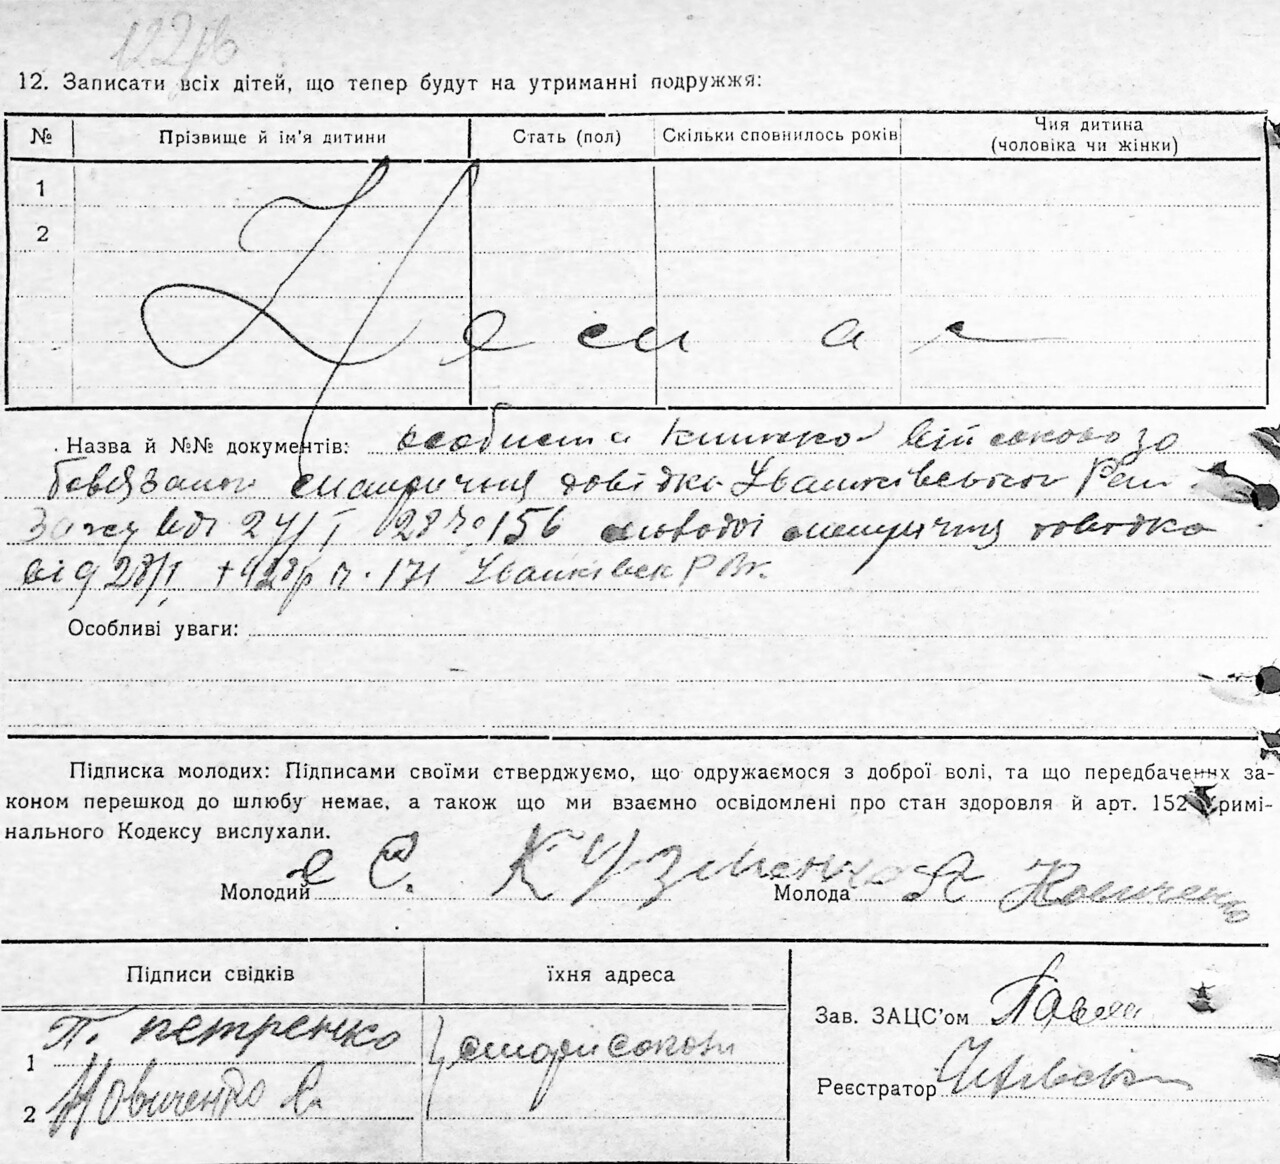 12. Записати всіх дітей, що тепер будут на утриманні подружжя:
№ Прізвище й ім'я дитини Стать (пол) Скільки сповнилось років Чия дитина
(чоловіка чи жінки)
1
2
Немає
Назва й №№ документів: особиста книжка військовозо
бовязаного довідка Іванківського
від 24/I 28 р. 156 молодої довідка
від 28/I 28 р n. 171
Особливі уваги:
Підписка молодих: Підписами своїми стверджуємо, що одружаємося з доброї волі, та що передбачених за-
коном перешкод до шлюбу немає, а також що ми взаємно освідомлені про стан здоровля й арт. 152 Кримі-
нального Кодексу вислухали.
Молодий Є. Кузменко Молода
Підписи свідків їхня адреса
Зав. ЗАЦС'ом
1 П. Петренко
Реєстратор
2 Новиченко